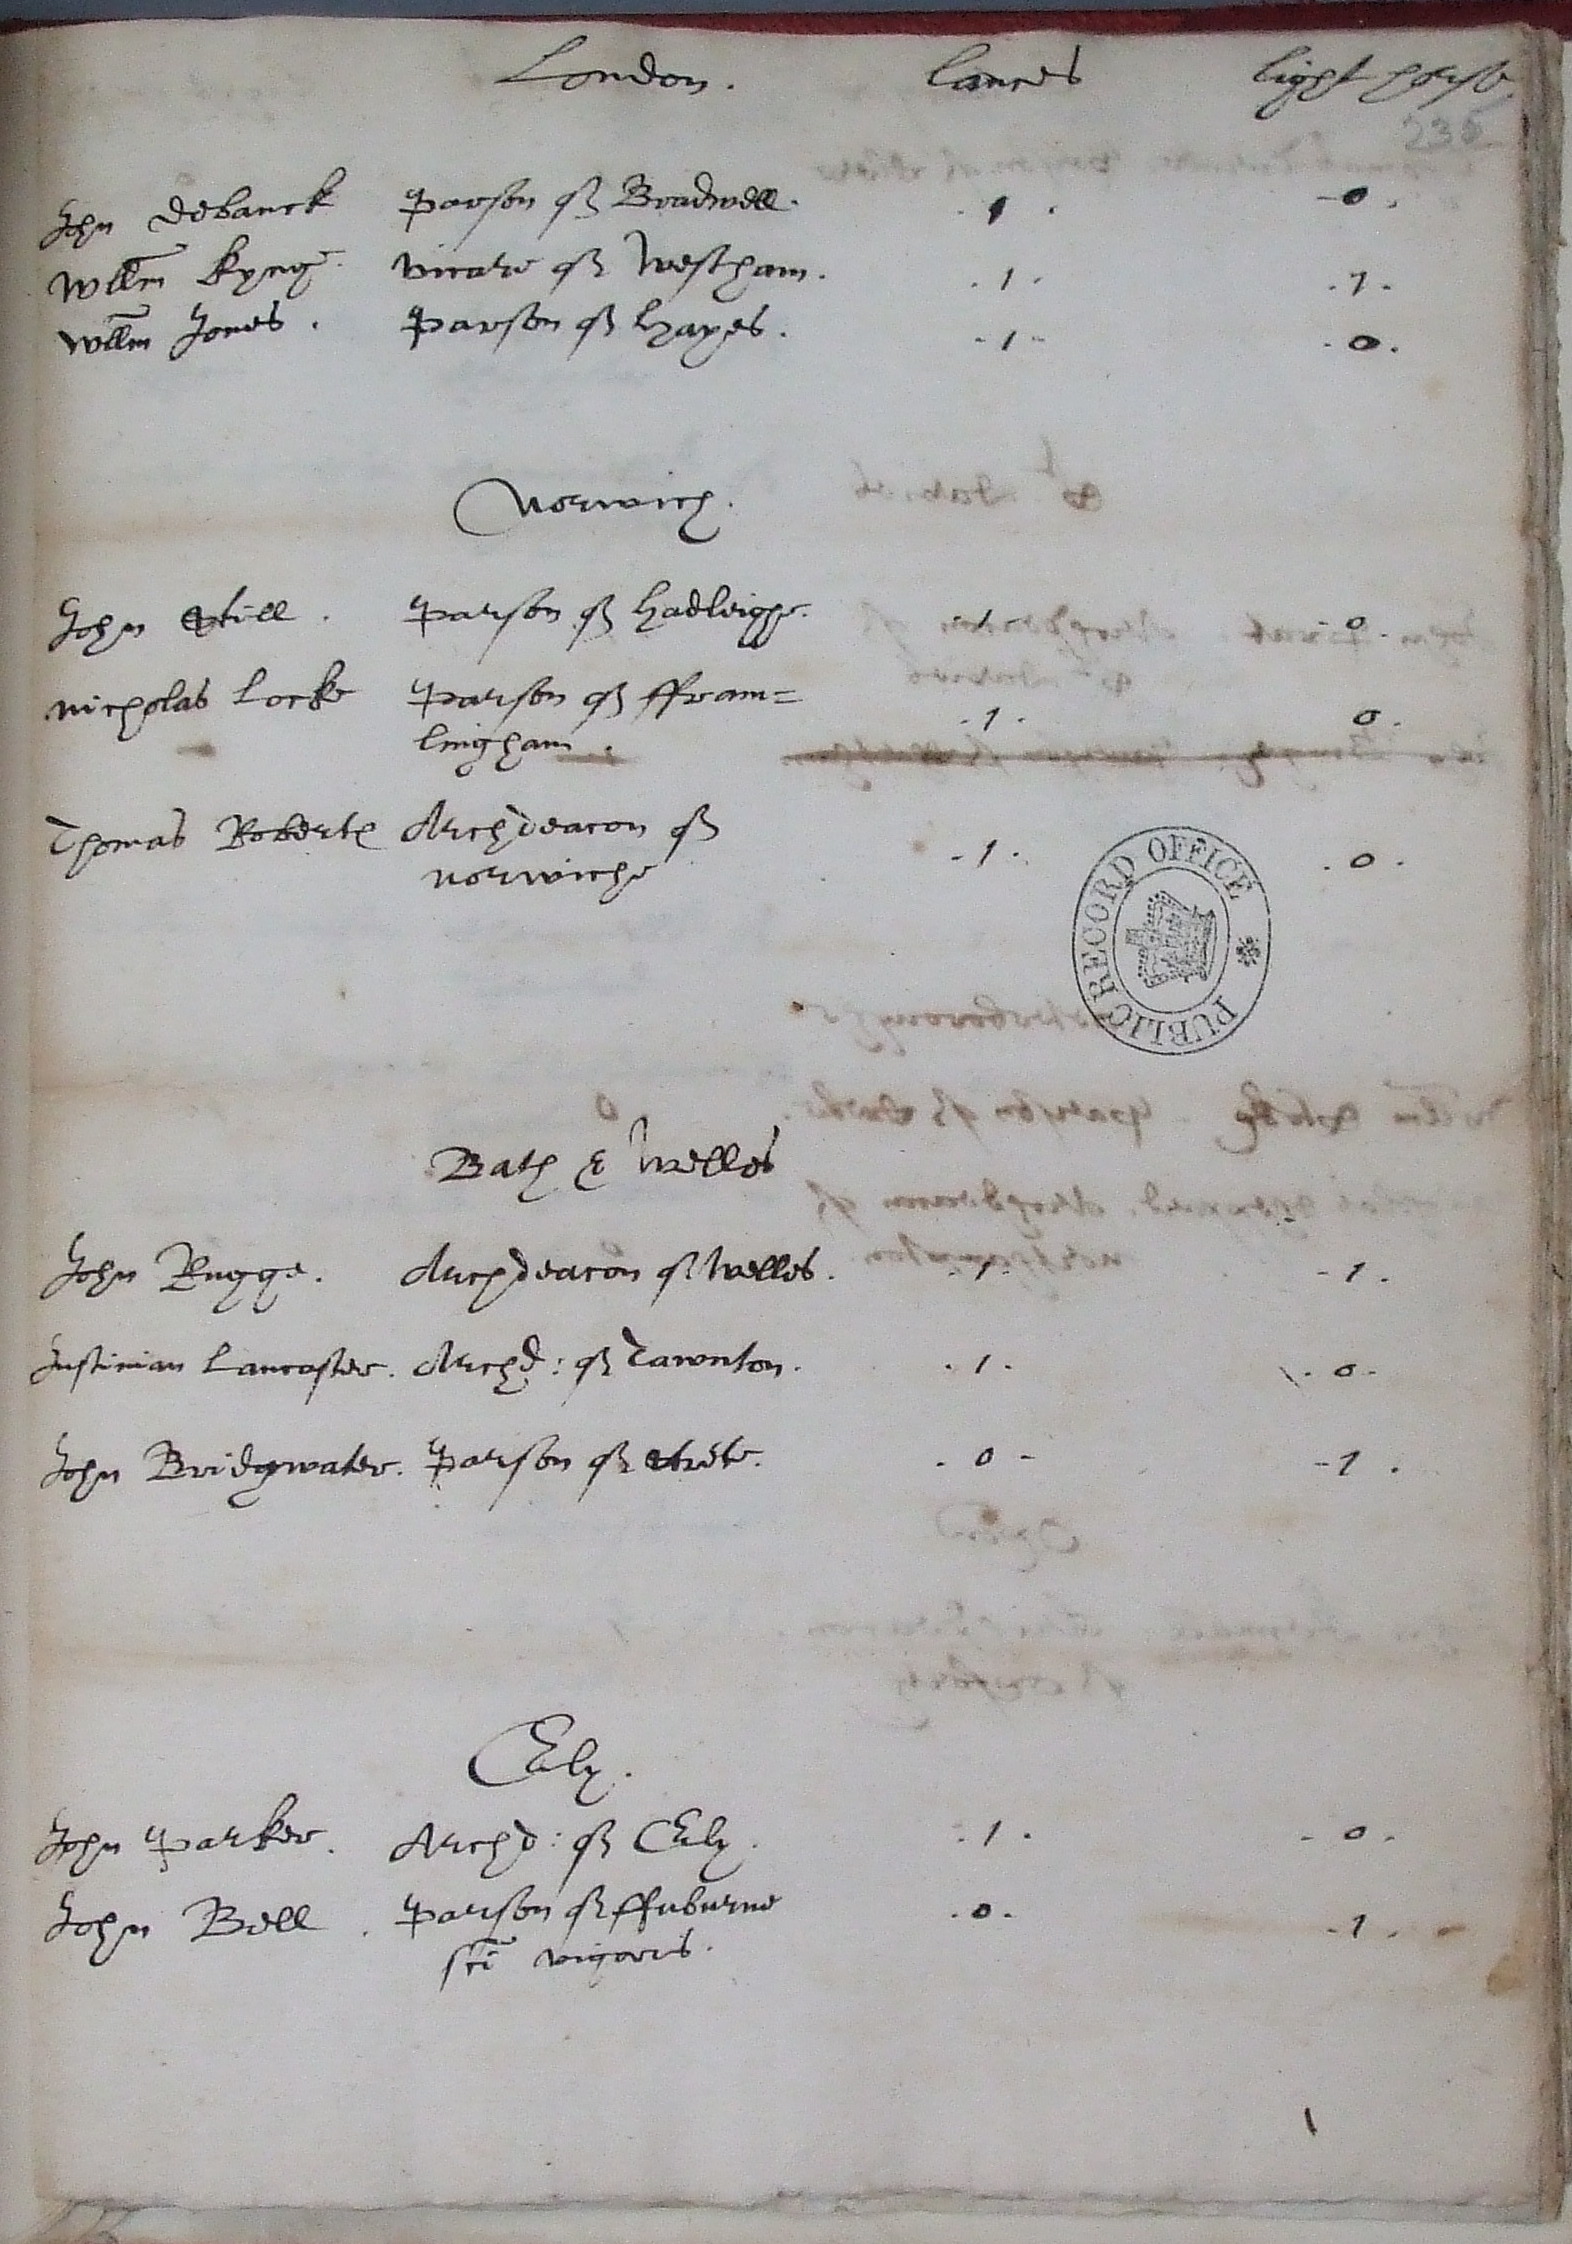 London. lances light horse.
235
John Debanck Parson of Bradwell. . 1 . - 0 .
Willm Kynge. vicare of Westham. . 1 . . 1 .
Willm Jones. Parson of Hayes. - 1 - . 0 .
Norwich.
John Still. Parson of Hadleighe. . 1 . - 0 .
Nicholas Locke Parson of ffram=
lingham. . 1 . 0 .
Thomas Roberts Archdeacon of
Norwiche - 1 . . 0 .
PUBLIC RECORD OFFICE
Bath & Welles
John Rugge. Archdeacon of Welles. . 1 . - 1 .
Justinian Lancaster. Archd: of Tawnton. . 1 . . 0 -
John Bridgwater. Parson of Strete. . 0 - - 1 .
Ely.
John Parker. Archd: of Ely. . 1 . - 0 .
John Bell. Parson of ffulburne
sci vigoris. . 0 . - 1 .